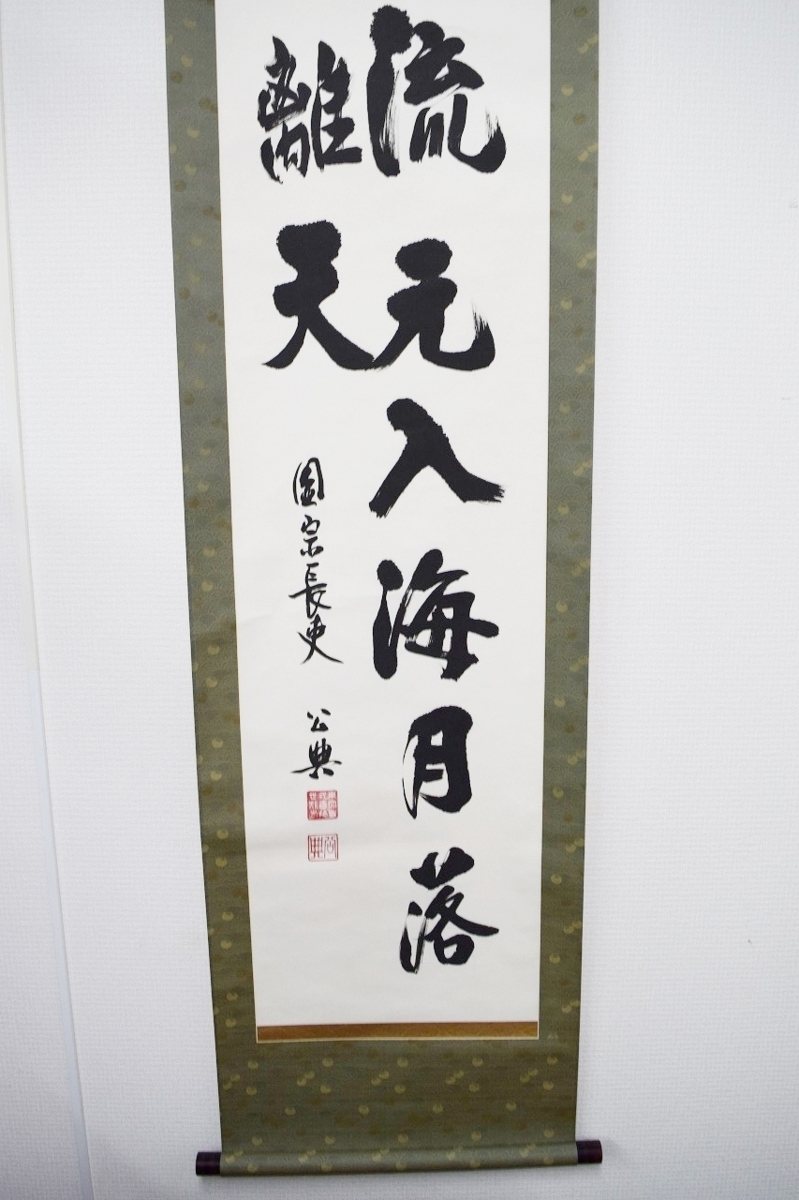 流元入海月落
離天
圓宗長吏 公典